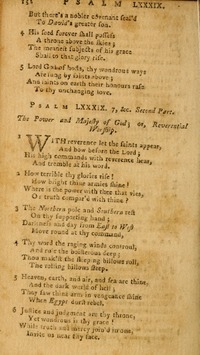 152 PSALM LXXXIX.
But there's a nobler covenant seal'd
To David's greater son.
4 His seed forever shall possess
A throne above the skies;
The meanest subjects of his grace
Shall to that glory rise.
5 Lord God of hosts, thy wondrous ways
Are sung by saints above;
And saints on earth their honours raise
To thy unchanging love.
PSALM LXXXIX. 7, &c. Second Part.
The Power and Majesty of God; or, Reverential
Worship.
1 WITH reverence let the saints appear,
And bow before the Lord;
His high commands with reverence hear,
And tremble at his word.
2 How terrible thy glories rise!
How bright thine armies shine!
Where is the power with thee that vies,
Or truth compar'd with thine?
3 The Northern pole and Southern rest
On thy supporting hand;
Darkness and day from East to West
Move round at thy command,
4 Thy word the raging winds controul,
And rule the boisterous deep;
Thou mak'st the sleeping billows roll,
The rolling billows sleep.
5 Heaven, earth, and air, and sea are thine,
And the dark world of hell;
They saw thine arm in vengeance shine
When Egypt durst rebel.
6 Justice and judgment are thy throne,
Yet wondrous is thy grace!
While truth and mercy join'd
Invite us near thy face.